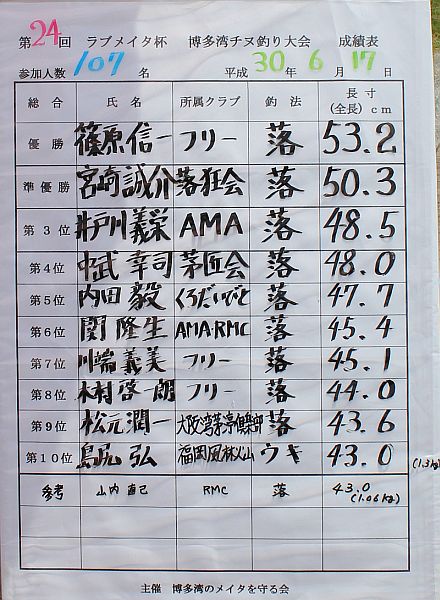 第24回 ラブメイタ杯 博多湾チヌ釣り大会 成績表
参加人数 107 名 平成 30 年 6 月 17 日
総合 氏名 所属クラブ 釣法 長寸(全長)cm
優勝 篠原信一 フリー 落 53.2
準優勝 宮崎誠介 落狂会 落 50.3
第3位 井戸川義栄 AMA 落 48.5
第4位 中武幸司 茅匠会 落 48.0
第5位 内田毅 くろだいでと 落 47.7
第6位 関隆生 AMA・RMC 落 45.4
第7位 川端義美 フリー 落 45.1
第8位 木村啓一朗 フリー 落 44.0
第9位 松元潤一 大阪湾茅渟倶楽部 落 43.6
第10位 島尻弘 福岡風林火山 ウキ 43.0 (1.3kg)
参考 山内直己 RMC 落 43.0 (1.06kg)
主催 博多湾のメイタを守る会